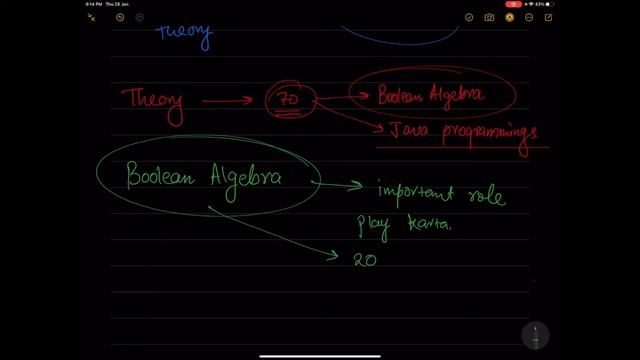 9:14 PM Thu 28 Jan
43%
Theory
Theory → 70 → Boolean Algebra
→ Java programmings
Boolean Algebra → important role
play karta.
→ 20